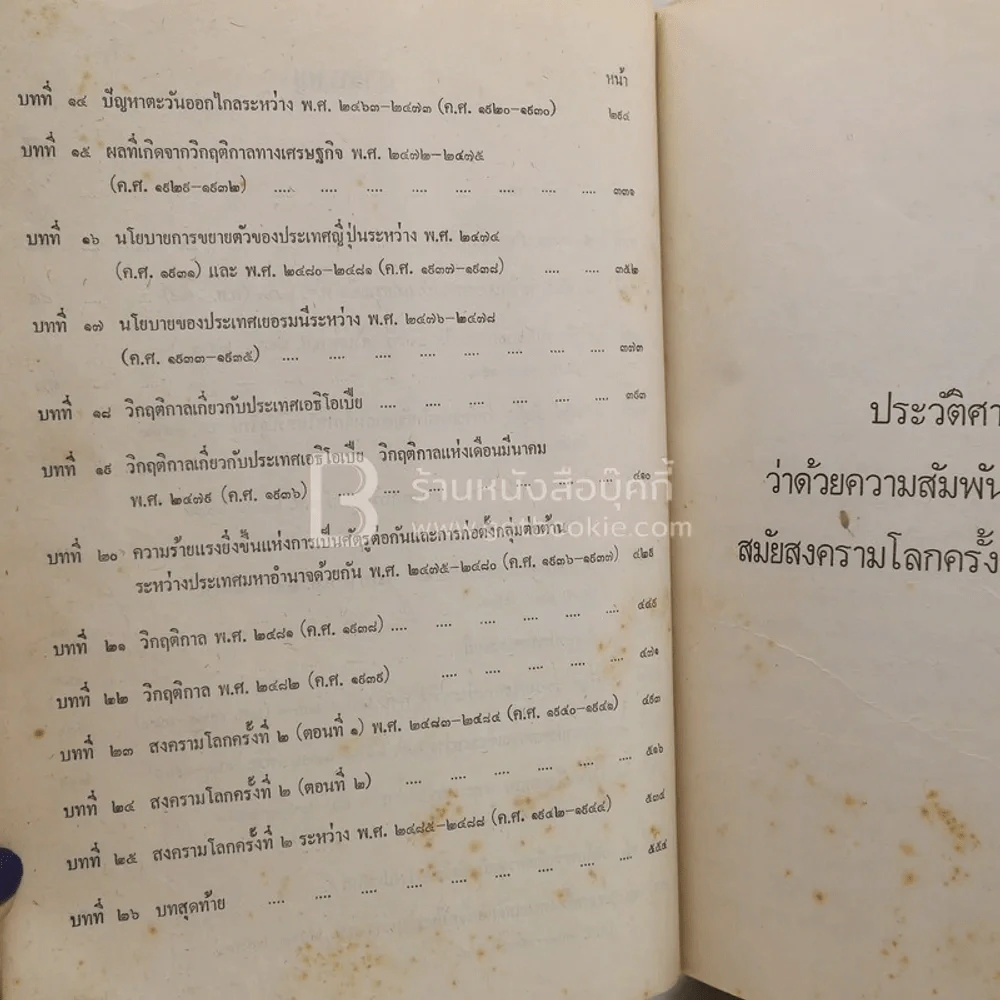 หน้า
บทที่ ๑๔ ปัญหาตะวันออกไกลระหว่าง พ.ศ. ๒๔๖๓-๒๔๗๓ (ค.ศ. ๑๙๒๐-๑๙๓๐) ๒๙๔
บทที่ ๑๕ ผลที่เกิดจากวิกฤติกาลทางเศรษฐกิจ พ.ศ. ๒๔๗๒-๒๔๗๕
(ค.ศ. ๑๙๒๙-๑๙๓๒) .... .... .... .... .... .... .... .... ๓๓๑
บทที่ ๑๖ นโยบายการขยายตัวของประเทศญี่ปุ่นระหว่าง พ.ศ. ๒๔๗๔
(ค.ศ. ๑๙๓๑) และ พ.ศ. ๒๔๘๐-๒๔๘๑ (ค.ศ. ๑๙๓๗-๑๙๓๘) .... .... ๓๕๒
บทที่ ๑๗ นโยบายของประเทศเยอรมนีระหว่าง พ.ศ. ๒๔๗๖-๒๔๗๘
(ค.ศ. ๑๙๓๓-๑๙๓๕) .... .... .... .... .... .... .... .... ๓๗๓
บทที่ ๑๘ วิกฤติกาลเกี่ยวกับประเทศเอธิโอเปีย .... .... .... .... .... .... ๓๙๓
บทที่ ๑๙ วิกฤติกาลเกี่ยวกับประเทศเอธิโอเปีย วิกฤติกาลแห่งเดือนมีนาคม
พ.ศ. ๒๔๗๙ (ค.ศ. ๑๙๓๖) .... .... .... .... .... .... .... ๔๑๐
บทที่ ๒๐ ความร้ายแรงยิ่งขึ้นแห่งการเป็นศัตรูต่อกันและการก่อตั้งกลุ่มต่อต้าน
ระหว่างประเทศมหาอำนาจด้วยกัน พ.ศ. ๒๔๗๕-๒๔๘๐ (ค.ศ. ๑๙๓๖-๑๙๓๗) ๔๒๙
บทที่ ๒๑ วิกฤติกาล พ.ศ. ๒๔๘๑ (ค.ศ. ๑๙๓๘) .... .... .... .... .... .... ๔๔๙
บทที่ ๒๒ วิกฤติกาล พ.ศ. ๒๔๘๒ (ค.ศ. ๑๙๓๙) .... .... .... .... .... ๔๗๑
บทที่ ๒๓ สงครามโลกครั้งที่ ๒ (ตอนที่ ๑) พ.ศ. ๒๔๘๓-๒๔๘๔ (ค.ศ. ๑๙๔๐-๑๙๔๑) ๔๙๓
บทที่ ๒๔ สงครามโลกครั้งที่ ๒ (ตอนที่ ๒) .... .... .... .... .... .... ๕๑๖
บทที่ ๒๕ สงครามโลกครั้งที่ ๒ ระหว่าง พ.ศ. ๒๔๘๕-๒๔๘๘ (ค.ศ. ๑๙๔๒-๑๙๔๔) ๕๓๔
บทที่ ๒๖ บทสุดท้าย .... .... .... .... .... .... .... .... .... ๕๕๔
ร้านหนังสือบุ๊คกี้
ประวัติศา
ว่าด้วยความสัมพัน
สมัยสงครามโลกครั้ง